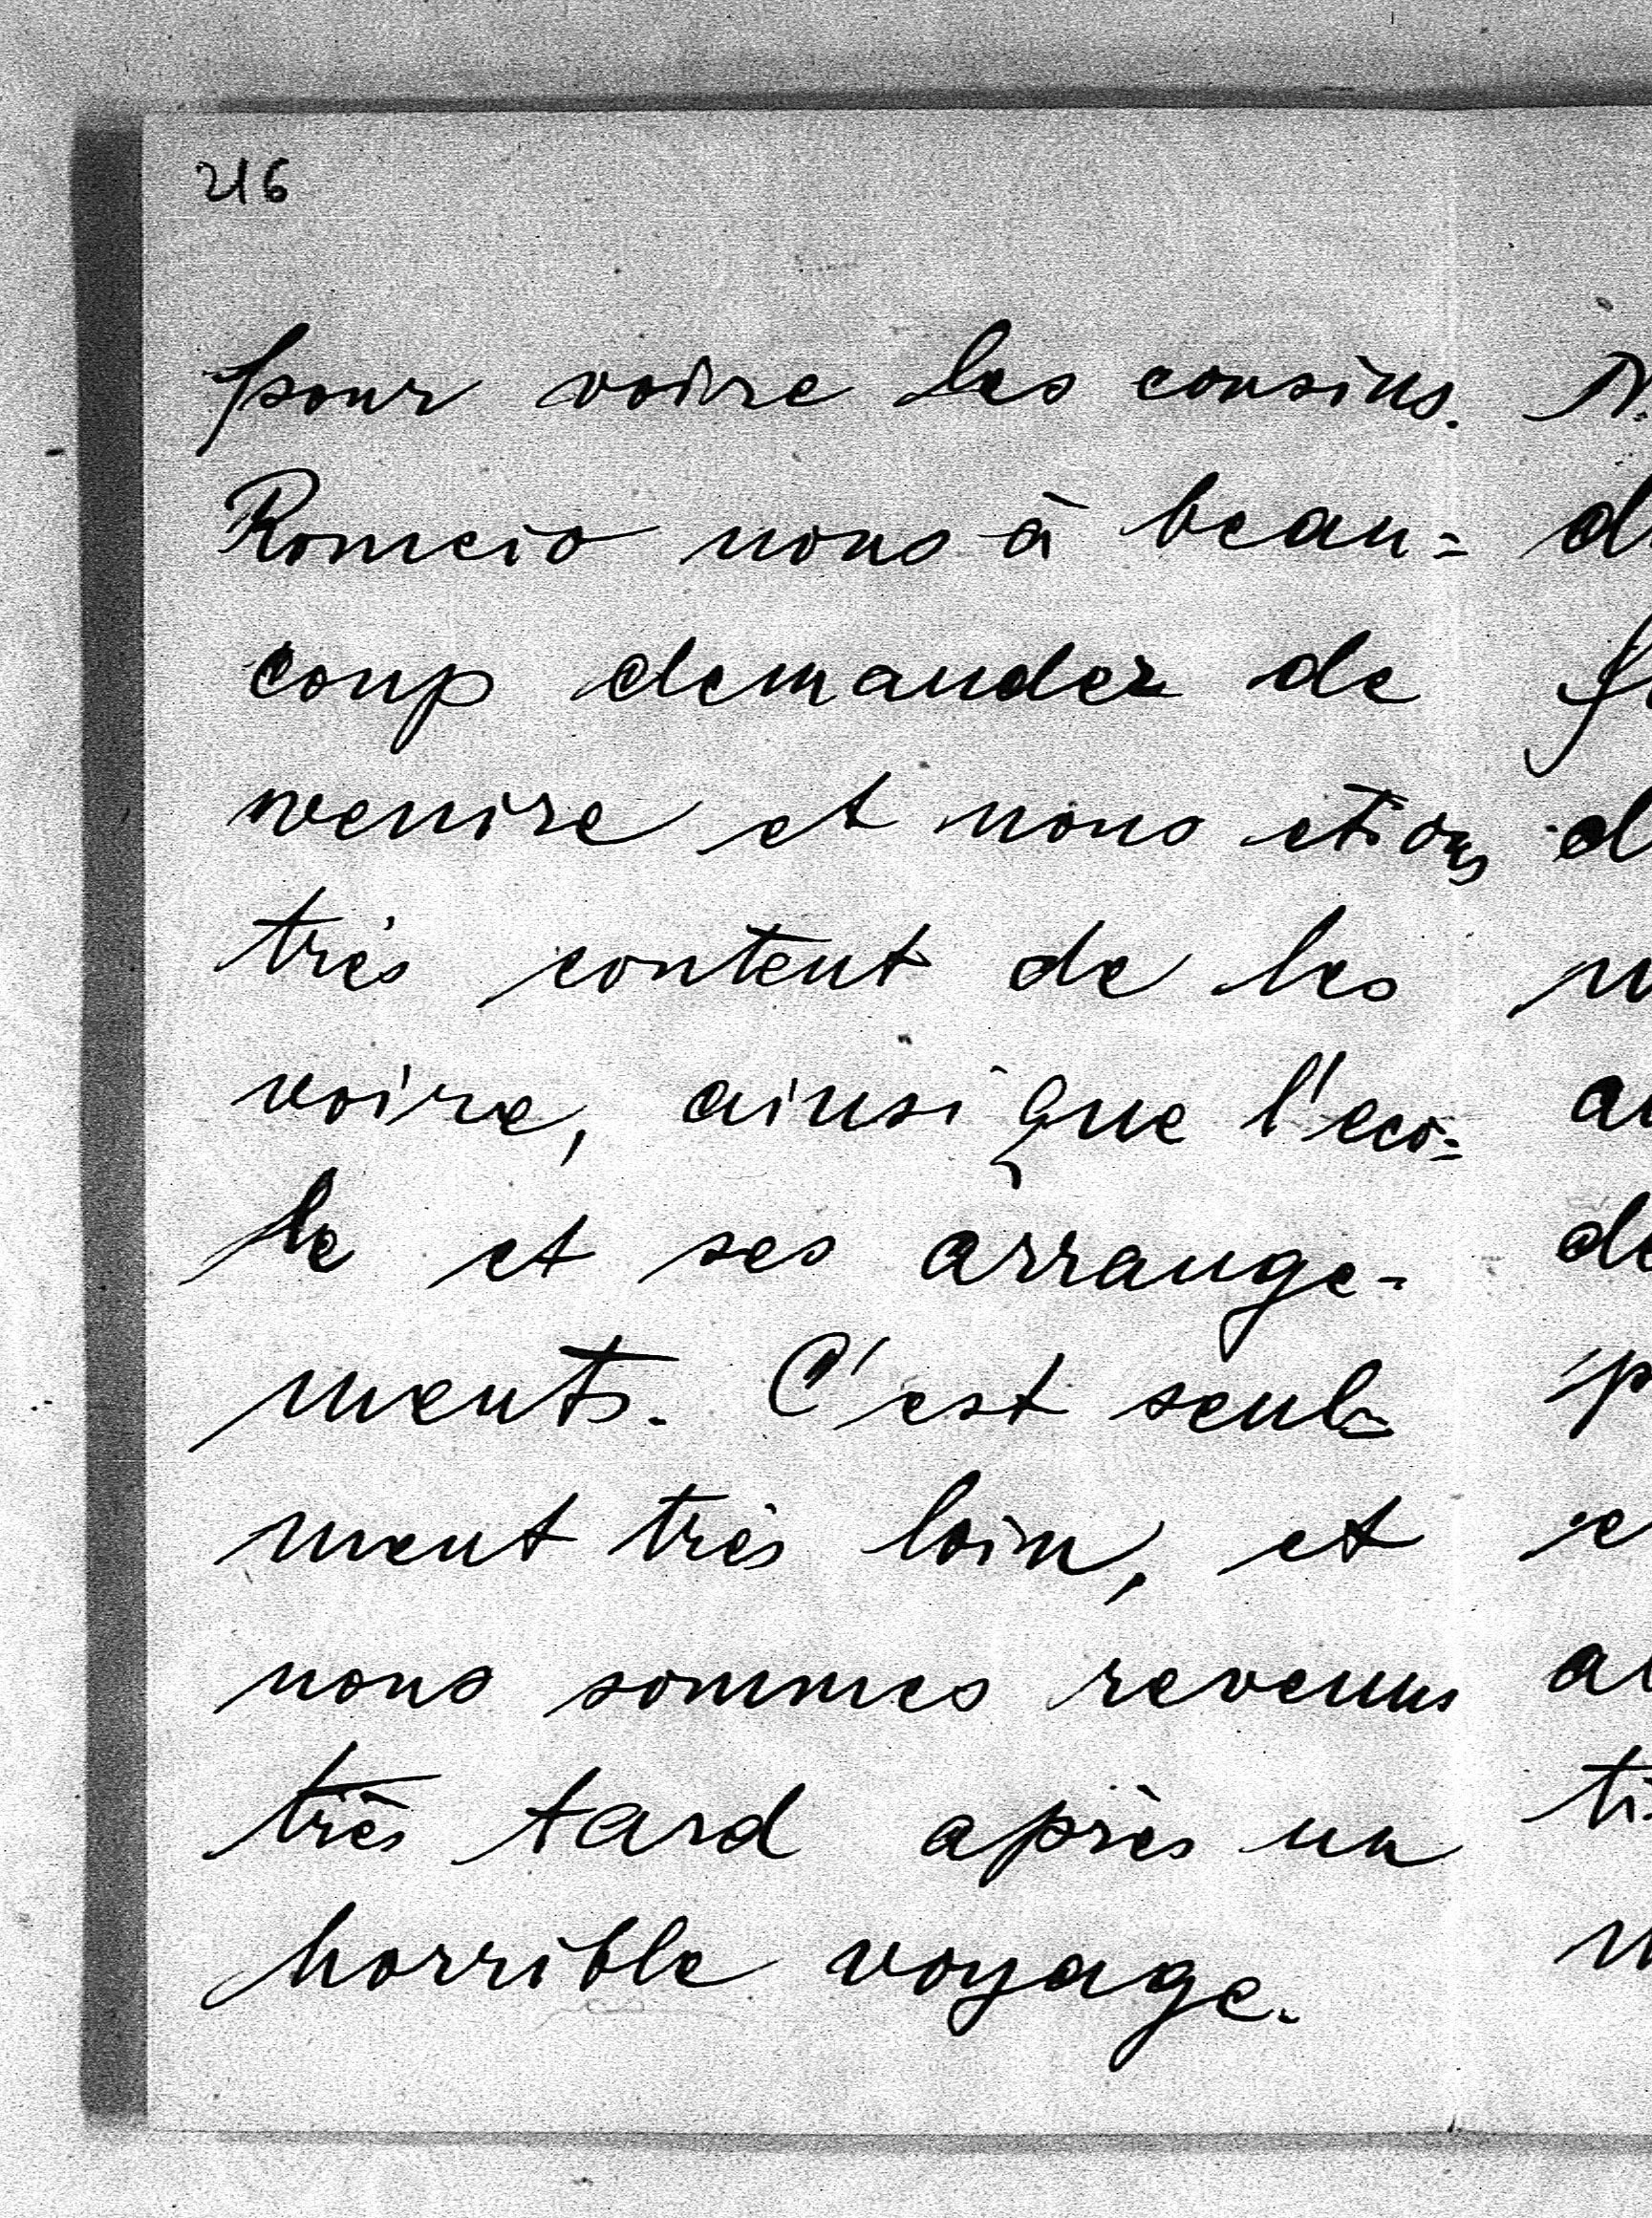 216
pour voire les cousins.
Romeio nous à beau=
coup demander de
venire et nous etions
très content de les
voire, ainsi que l'eco=
le et ses arrange-
ments. C'est seul=
ment très loin, et
nous sommes revenus
très tard après un
horrible voyage.